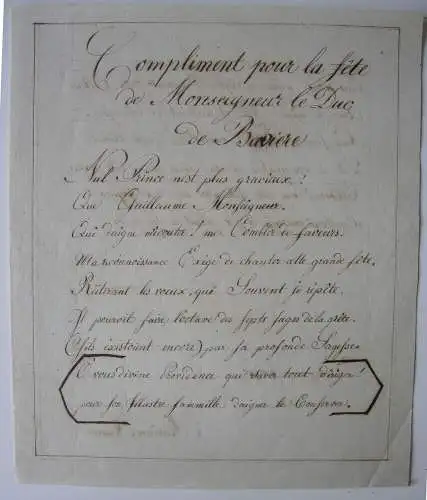 Compliment pour la fête
de Monseigneur le Duc
de Bavière
Nul Prince n'est plus gracieux!
Que Guillaume Monseigneur.
Qui daigne m'écouter! me Combler de faveurs.
Ma reconnoissance Exige de chanter cette grande fête.
Réiterant les voeux, que Souvent je répète.
Il pouroit faire l'octave des septs sages de la grèce.
(s'ils existoient encore) par sa profonde Sagesse.
O vous divine Providence qui tout dirigez!
pour son Illustre fammille daigner le Conserver.